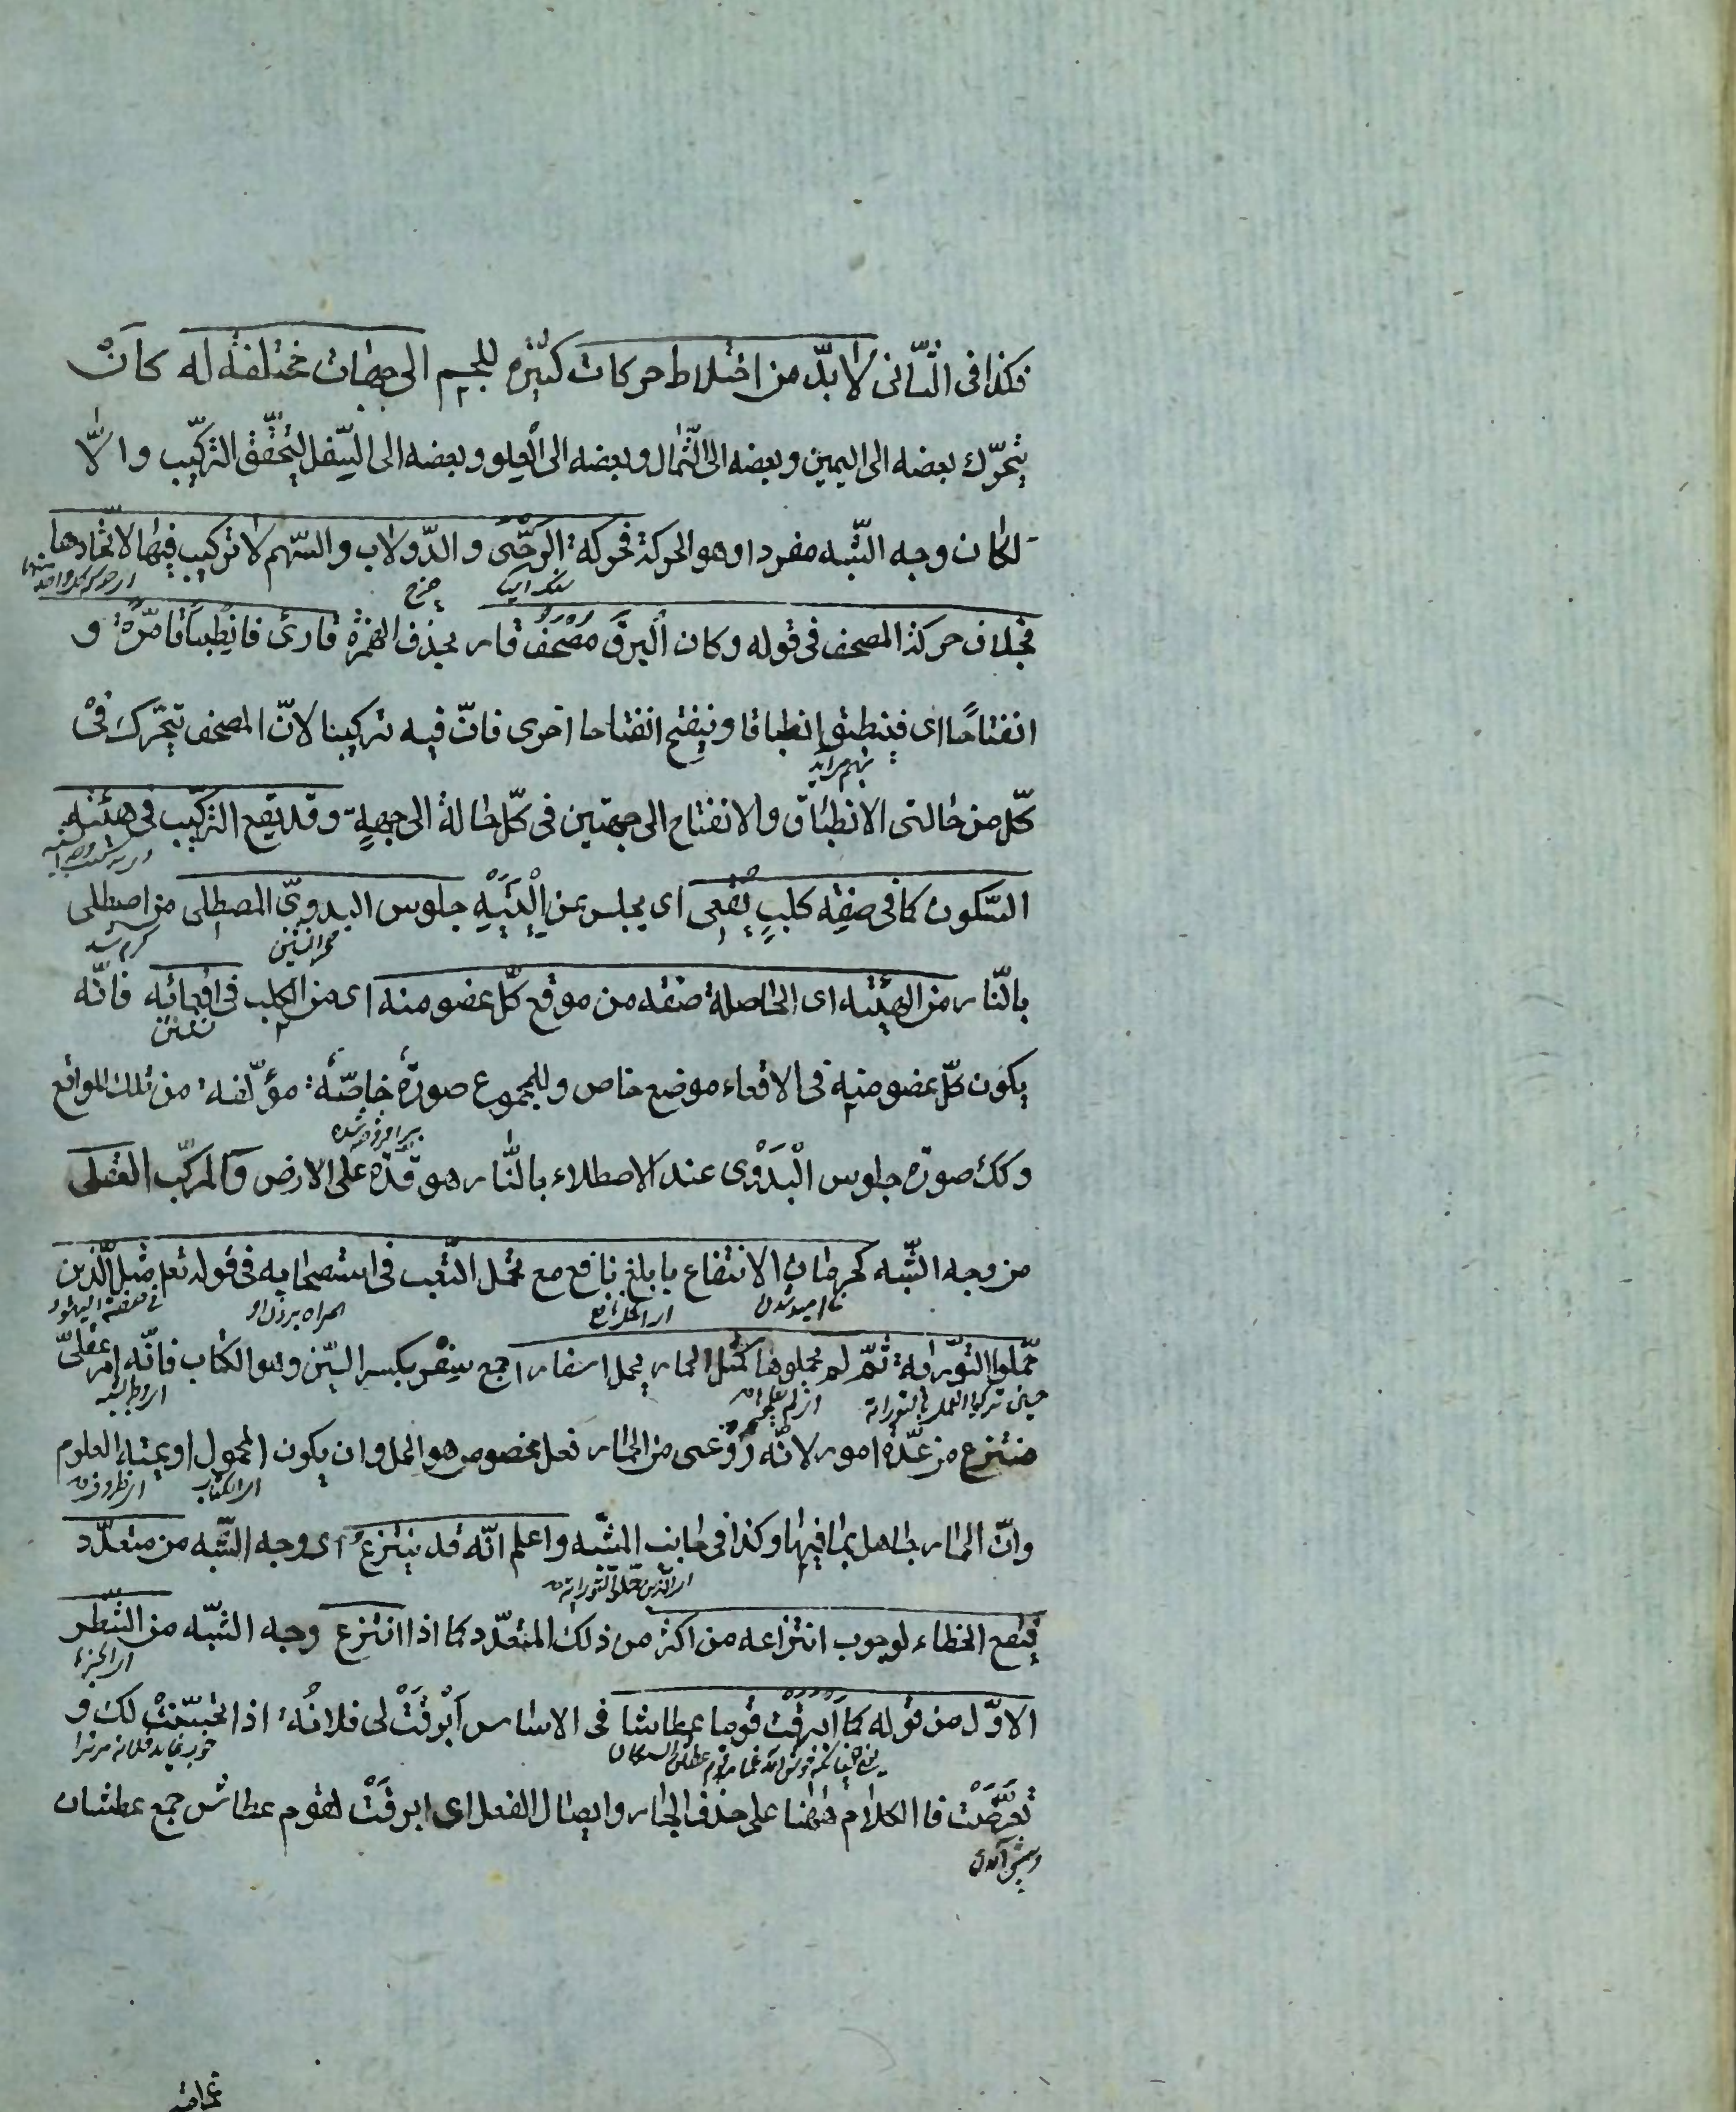 فكذا فى الثّانى لا بدّ من اختلاط حركات كثيره للجسم الى جهات مختلفة له كان
يتحرّك بعضه الى اليمين وبعضه الى الشّمال وبعضه الى العلو وبعضه الى السّفل ليتحقّق التركيب والّا
لكان وجه الشّبه مفردا وهو الحركة فحركة الرّحى والدّولاب والسّهم لا تركيب فيها لاتّحادها
سنك اسيا چرخ
بخلاف حركة المصحف فى قوله وكان البرق مصحف قار بحذف الهمزة قارئ فانطباقا مرّة و
انفتاحًا اى فينطبق انطباقا وينفتح انفتاحا اخرى فانّ فيه تركيبا لانّ المصحف يتحرّك فى
بهم برآيد
كلّ من حالتى الانطباق والانفتاح الى جهتين فى كلّ حالة الى جهةٍ وقد يقع التركيب فى هيئة
السّكون كما فى صفة كلبٍ يقعى اى يجلس عن إليتيه جلوس البدويّ المصطلى من اصطلى
صحرانشين گرم شد
بالنّار من الهيئة اى الحاصلة صفة من موقع كلّ عضو منه اى من الكلب فى اقعائه فانّه
يكون كلّ عضو منه فى الاقعاء موضع خاص وللمجموع صورة خاصّة مؤلّفة من تلك المواقع
برافروخته شده
وكك صورة جلوس البدوى عند الاصطلاء بالنّار هو قدة على الارض والمركّب العقلى
من وجه الشّبه كحرمان الانتفاع بابلغ نافع مع تحمل التّعب فى استصحابه فى قوله تعل مثل الّذين
نا اميد شدن همراه بردن او
حمّلوا التّوراة ثمّ لم يحملوها كمثل الحمار يحمل اسفارا جمع سفر بكسر السّين وهو الكتاب فانّه امر عقلىّ
حين تركوا العمل بالتوراة اى وجه الشبه
منتزع من عدّة امور لانّه روعى من الحمار فعل مخصوص هو الحمل وان يكون المحمول اوعية العلوم
اى الكتاب
وانّ الحمار جاهل بما فيها وكذا فى جانب المشبّه واعلم انّه قد ينتزع اى وجه الشّبه من متعدّد
اى الّذين حمّلوا التوراة
فيقع الخطاء لوجوب انتزاعه من اكثر من ذلك المتعدّد كما اذا انتزع وجه الشّبه من الشّطر
اى الجزء
الاوّل من قوله كما أبرقت قوما عطاشا فى الاساس أبرقت لى فلانة اذا تحسّنت لك و
تعرّضت فا الكلام ههنا على حذف الجار وايصال الفعل اى ابرقت لقوم عطاش جمع عطشان
وپيش آمدن
غمامة